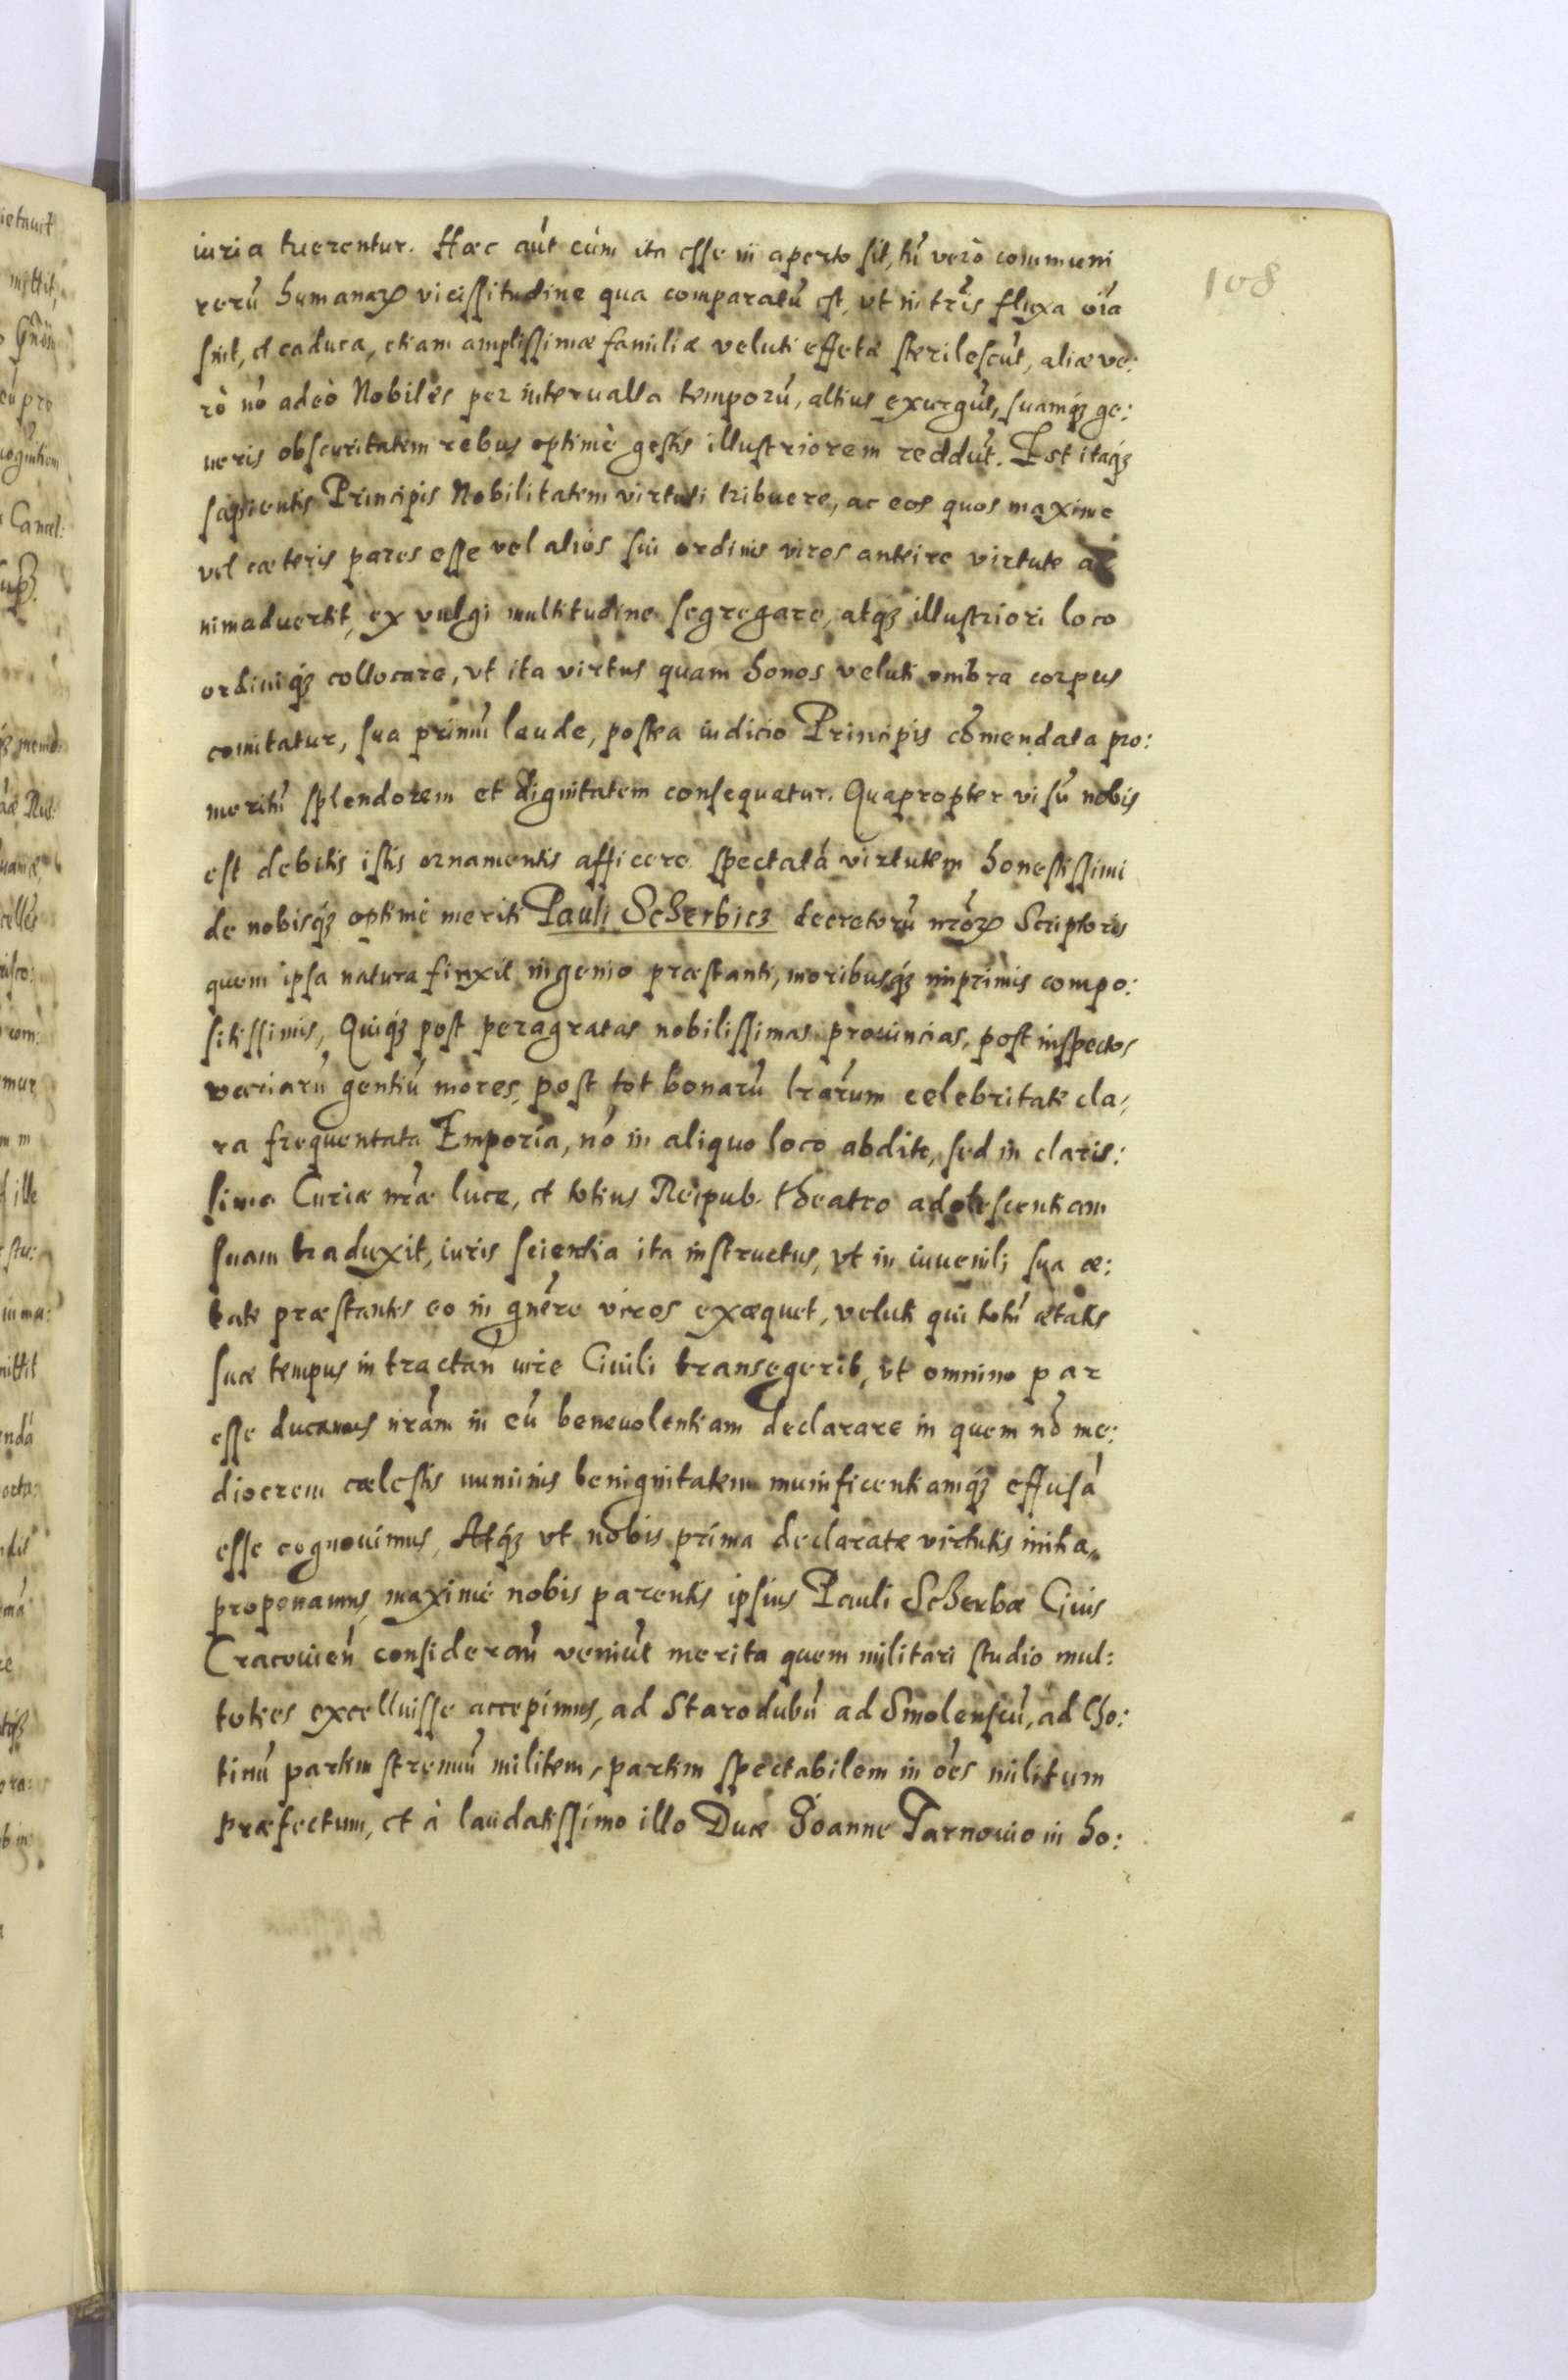 108
iuria tuerentur. Haec aũt cùm ita esse in aperto sit, tũ verò communi
rerũ humanarꝫ vicissitudine qua comparatũ est, vt in trĩs fluxa oĩa
sint, et caduca, etiam amplissimæ familiæ veluti effetæ sterilescũt, aliæ ve:
rò nõ adeò Nobiles per interualla temporũ, altius exurgũt, suamqꝫ ge:
neris obscuritatem rebus optimè gestis illustriorem reddũt. Est itaqꝫ
sapientis Principis Nobilitatem virtuti tribuere, ac eos quos maxime
vel cæteris pares esse vel alios sui ordinis viros anteire virtute a
nimaduertit, ex vulgi multitudine segregare, atqꝫ illustriori loco
ordiniqꝫ collocare, vt ita virtus quam honos veluti vmbra corpus
comitatur, sua primũ laude, postea iudicio Principis cõmendata pro:
meritũ splendorem et dignitatem consequatur. Quapropter visũ nobis
est debitis istis ornamentis afficere spectatã virtutem honestissimi
de nobisqꝫ optimè meriti Pauli Scherbicz decretorũ nrõrꝫ Scriptoris
quem ipsa natura finxit ingenio præstanti, moribusqꝫ inprimis compo:
sitissimis, Quiqꝫ post peragratas nobilissimas prouincias, post inspectos
variarũ gentiũ mores, post tot bonarũ lrãrum celebritate cla:
ra frequentata Emporia, nõ in aliquo loco abdito, sed in claris:
sima Curiæ nrãe luce, et totius Reipub. theatro adolescentiam
suam traduxit, iuris scientia ita instructus, vt in iuuenili sua æ:
tate præstantes eo in gnẽre viros exæquet, veluti qui totũ ætatis
suæ tempus in tractan̄ iure Ciuili transegerit, vt omnino par
esse ducamus nrãm in eũ beneuolentiam declarare in quem nõ me:
diocrem cælestis numinis benignitatem munificentiamqꝫ effusã
esse cognouimus, Atqꝫ vt nobis prima declaratæ virtutis initia
proponamus, maximè nobis parentis ipsius Pauli Scherbæ Ciuis
Cracouien̄ consideran̄ veniũt merita quem militari studio mul:
toties excelluisse accepimus, ad Starodubũ ad Smolenscũ, ad Cho:
tinũ partim strenuũ militem, partim spectabilem in oẽs militum
præfectum, et à laudatissimo illo Duce Joanne Tarnouio in ho: